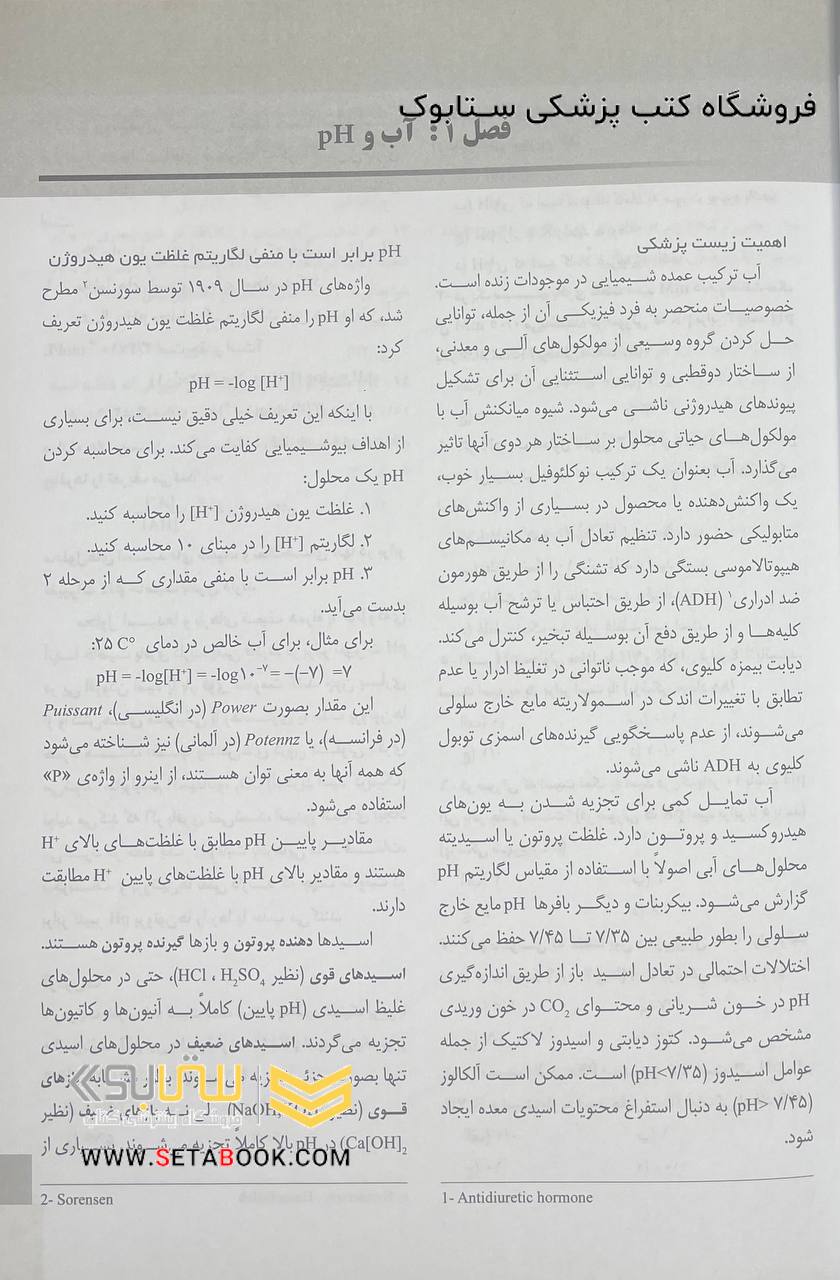 فروشگاه کتب پزشکی ستابوک
فصل ۱: آب و pH
اهمیت زیست پزشکی
آب ترکیب عمده شیمیایی در موجودات زنده است.
خصوصیات منحصر به فرد فیزیکی آن از جمله، توانایی
حل کردن گروه وسیعی از مولکول‌های آلی و معدنی،
از ساختار دوقطبی و توانایی استثنایی آن برای تشکیل
پیوندهای هیدروژنی ناشی می‌شود. شیوه میانکنش آب با
مولکول‌های حیاتی محلول بر ساختار هر دوی آنها تاثیر
می‌گذارد. آب بعنوان یک ترکیب نوکلئوفیل بسیار خوب،
یک واکنش‌دهنده یا محصول در بسیاری از واکنش‌های
متابولیکی حضور دارد. تنظیم تعادل آب به مکانیسم‌های
هیپوتالاموسی بستگی دارد که تشنگی را از طریق هورمون
ضد ادراری۱ (ADH)، از طریق احتباس یا ترشح آب بوسیله
کلیه‌ها و از طریق دفع آن بوسیله تبخیر، کنترل می‌کند.
دیابت بیمزه کلیوی، که موجب ناتوانی در تغلیظ ادرار یا عدم
تطابق با تغییرات اندک در اسمولاریته مایع خارج سلولی
می‌شوند، از عدم پاسخگویی گیرنده‌های اسمزی توبول
کلیوی به ADH ناشی می‌شوند.
آب تمایل کمی برای تجزیه شدن به یون‌های
هیدروکسید و پروتون دارد. غلظت پروتون یا اسیدیته
محلول‌های آبی اصولاً با استفاده از مقیاس لگاریتم pH
گزارش می‌شود. بیکربنات و دیگر بافرها pH مایع خارج
سلولی را بطور طبیعی بین ۷/۳۵ تا ۷/۴۵ حفظ می‌کنند.
اختلالات احتمالی در تعادل اسید باز از طریق اندازه‌گیری
pH در خون شریانی و محتوای CO₂ در خون وریدی
مشخص می‌شود. کتوز دیابتی و اسیدوز لاکتیک از جمله
عوامل اسیدوز (pH<۷/۳۵) است. ممکن است آلکالوز
(pH> ۷/۴۵) به دنبال استفراغ محتویات اسیدی معده ایجاد
شود.
1- Antidiuretic hormone
pH برابر است با منفی لگاریتم غلظت یون هیدروژن
واژه‌های pH در سال ۱۹۰۹ توسط سورنسن۲ مطرح
شد، که او pH را منفی لگاریتم غلظت یون هیدروژن تعریف
کرد:
pH = -log [H⁺]
با اینکه این تعریف خیلی دقیق نیست، برای بسیاری
از اهداف بیوشیمیایی کفایت می‌کند. برای محاسبه کردن
pH یک محلول:
۱. غلظت یون هیدروژن [H⁺] را محاسبه کنید.
۲. لگاریتم [H⁺] را در مبنای ۱۰ محاسبه کنید.
۳. pH برابر است با منفی مقداری که از مرحله ۲
بدست می‌آید.
برای مثال، برای آب خالص در دمای ۲۵ C°:
pH = -log[H⁺] = -log۱۰⁻⁷ = −(−۷) =۷
این مقدار بصورت Power (در انگلیسی)، Puissant
(در فرانسه)، یا Potennz (در آلمانی) نیز شناخته می‌شود
که همه آنها به معنی توان هستند، از اینرو از واژه‌ی «P»
استفاده می‌شود.
مقادیر پایین pH مطابق با غلظت‌های بالای H⁺
هستند و مقادیر بالای pH با غلظت‌های پایین H⁺ مطابقت
دارند.
اسیدها دهنده پروتون و بازها گیرنده پروتون هستند.
اسیدهای قوی (نظیر HCl ، H₂SO₄)، حتی در محلول‌های
غلیظ اسیدی (pH پایین) کاملاً به آنیون‌ها و کاتیون‌ها
تجزیه می‌گردند. اسیدهای ضعیف در محلول‌های اسیدی
تنها بصورت
قوی (نظیر (نظیر
(Ca[OH]₂ در pH بالا کاملاً تجزیه می‌شوند. بسیاری از
2- Sorensen
ستابوک
فروشگاه اینترنتی کتاب
WWW.SETABOOK.COM